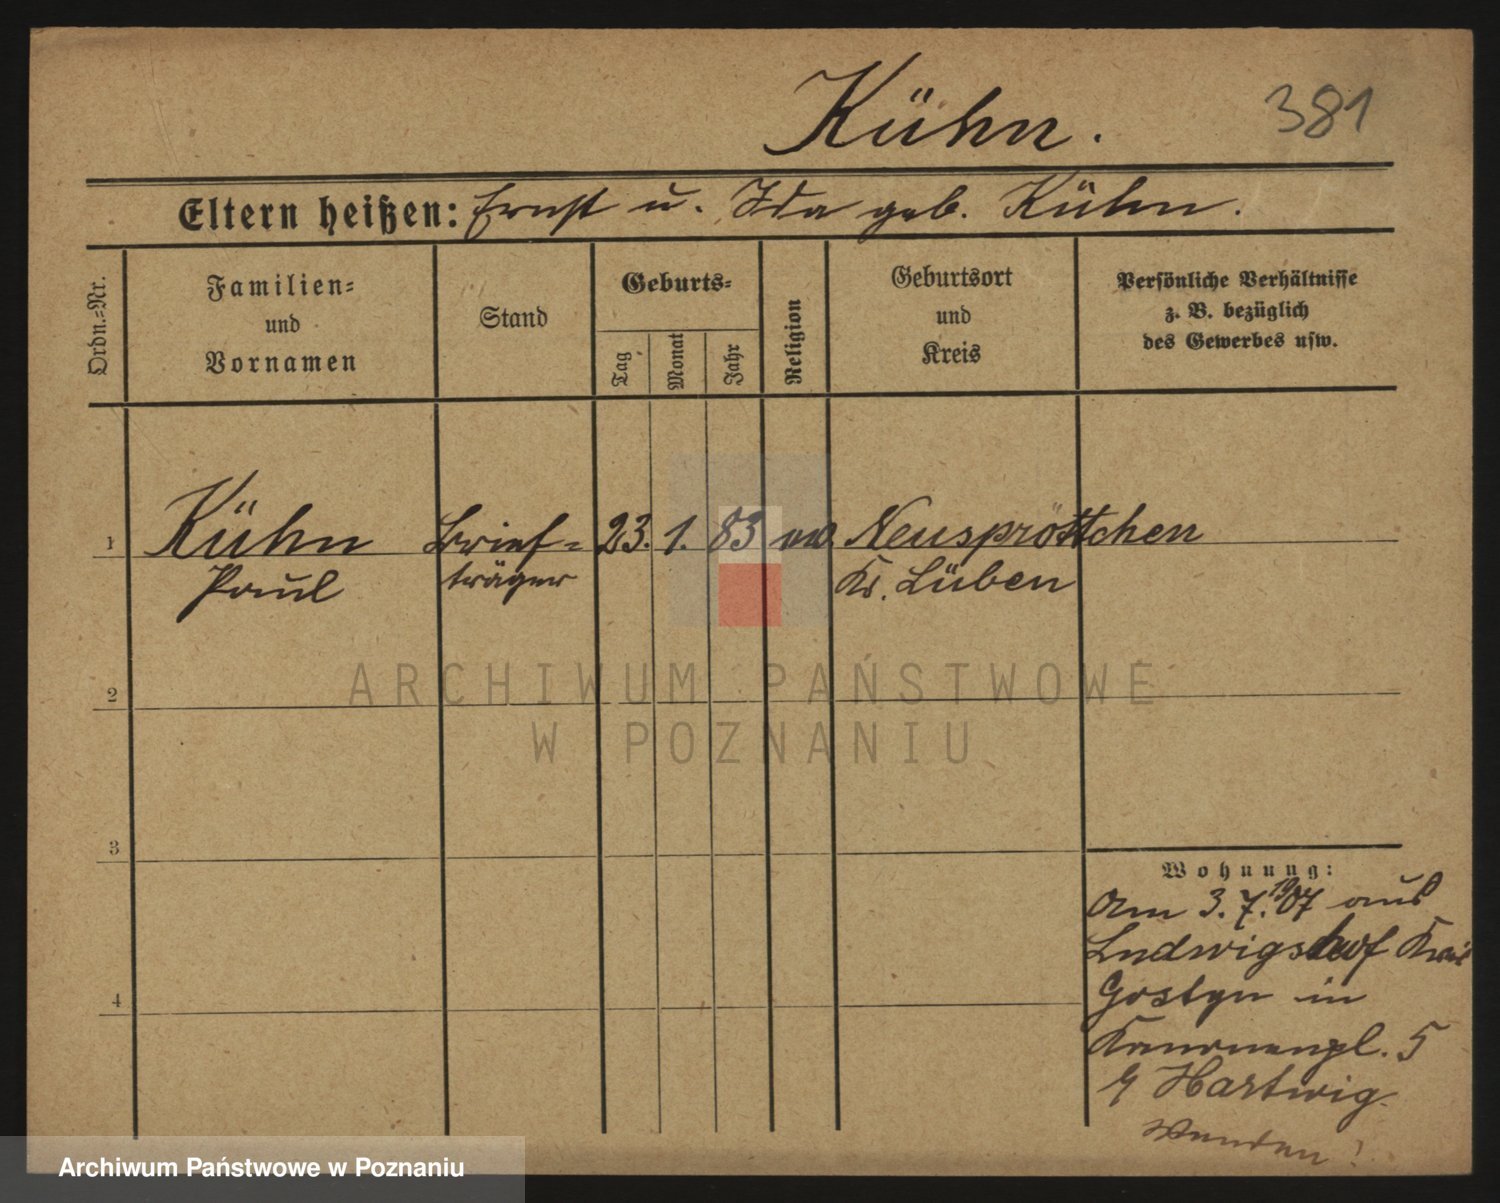 Kühn.
381
Eltern heißen: Ernst u. Ida geb. Kühn.
Ordn.-Nr.
Familien-
und
Vornamen
Stand
Geburts-
Tag
Monat
Jahr
Religion
Geburtsort
und
Kreis
Persönliche Verhältnisse
z. B. bezüglich
des Gewerbes usw.
1 Kühn Brief- 23. 1. 83 Neuspröttchen
Paul träger Kr. Lüben
2
3
4
Wohnung:
Am 3.7.1907 aus
Ludwigshof Kreis
Gostyn in
Kanonenpl. 5
Hartwig.
Wenden!
ARCHIWUM PAŃSTWOWE
W POZNANIU
Archiwum Państwowe w Poznaniu